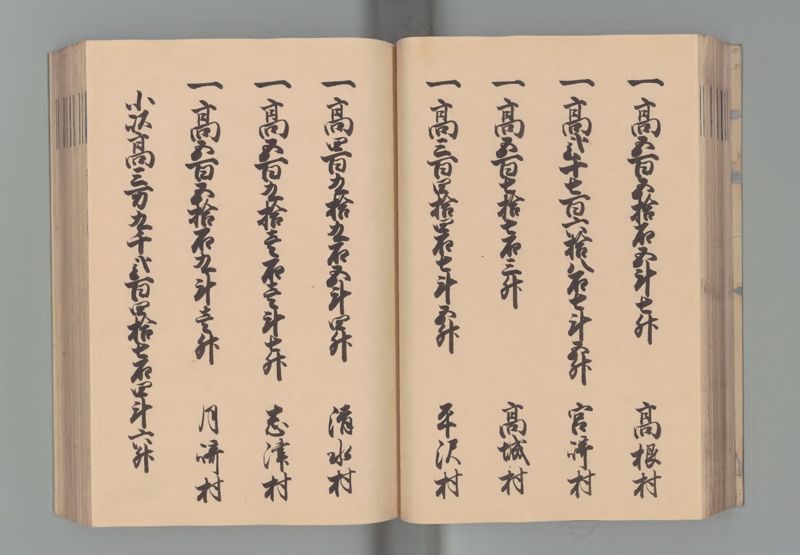 一高五百五拾石五斗七升 高根村
一高弐千七百六拾八石七斗五升 宮崎村
一高五百七拾七石三升 高城村
一高三百四拾四石七斗五升 平沢村
一高四百九拾九石五斗四升 清水村
一高五百九拾壱石壱斗七升 志津村
一高五百五拾石九斗壱升 月崎村
小以高三万九千弐百四拾七石四斗六升